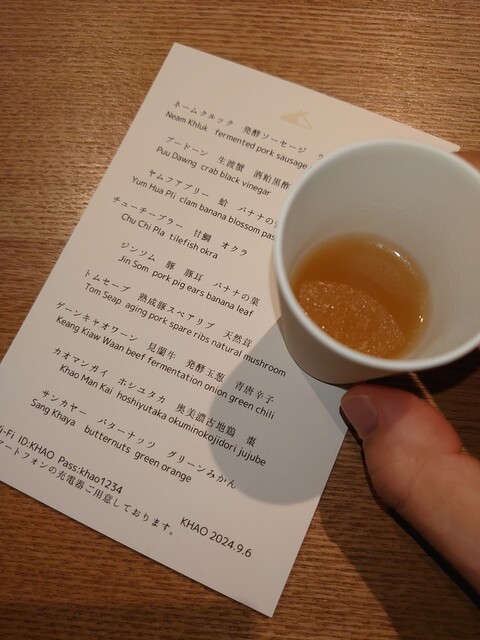 ネームクルック 発酵ソーセージ
Neam Khluk fermented pork sausage
プードーン 生渡蟹 酒粕黒酢
Puu Dawng crab black vinegar
ヤムフアプリー 蛤 バナナの
Yum Hua Pli clam banana blossom
チューチープラー 甘鯛 オクラ
Chu Chi Pla tilefish okra
ジンソム 豚 豚耳 バナナの葉
Jin Som pork pig ears banana leaf
トムセープ 熟成豚スペアリブ 天然茸
Tom Seap aging pork spare ribs natural mushroom
ゲーンキャオワーン 見蘭牛 発酵玉葱 青唐辛子
Keang Kiaw Waan beef fermentation onion green chili
カオマンガイ ホシユタカ 奥美濃古地鶏 棗
Khao Man Kai hoshiyutaka okuminokojidori jujube
サンカヤー バターナッツ グリーンみかん
Sang Khaya butternuts green orange
i-Fi ID:KHAO Pass:khao1234
マートフォンの充電器ご用意しております。
KHAO 2024.9.6